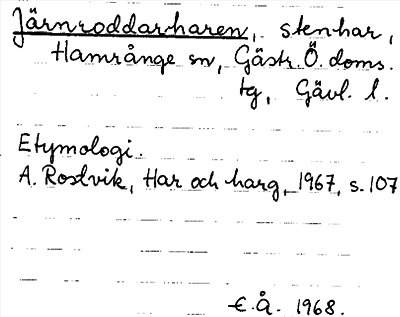 Järnroddarharen, stenhar,
Hamrånge sn, Gästr. Ö. doms.
tg, Gävl. l.
Etymologi.
A. Rostvik, Har och harg, 1967, s. 107
E.Å. 1968.